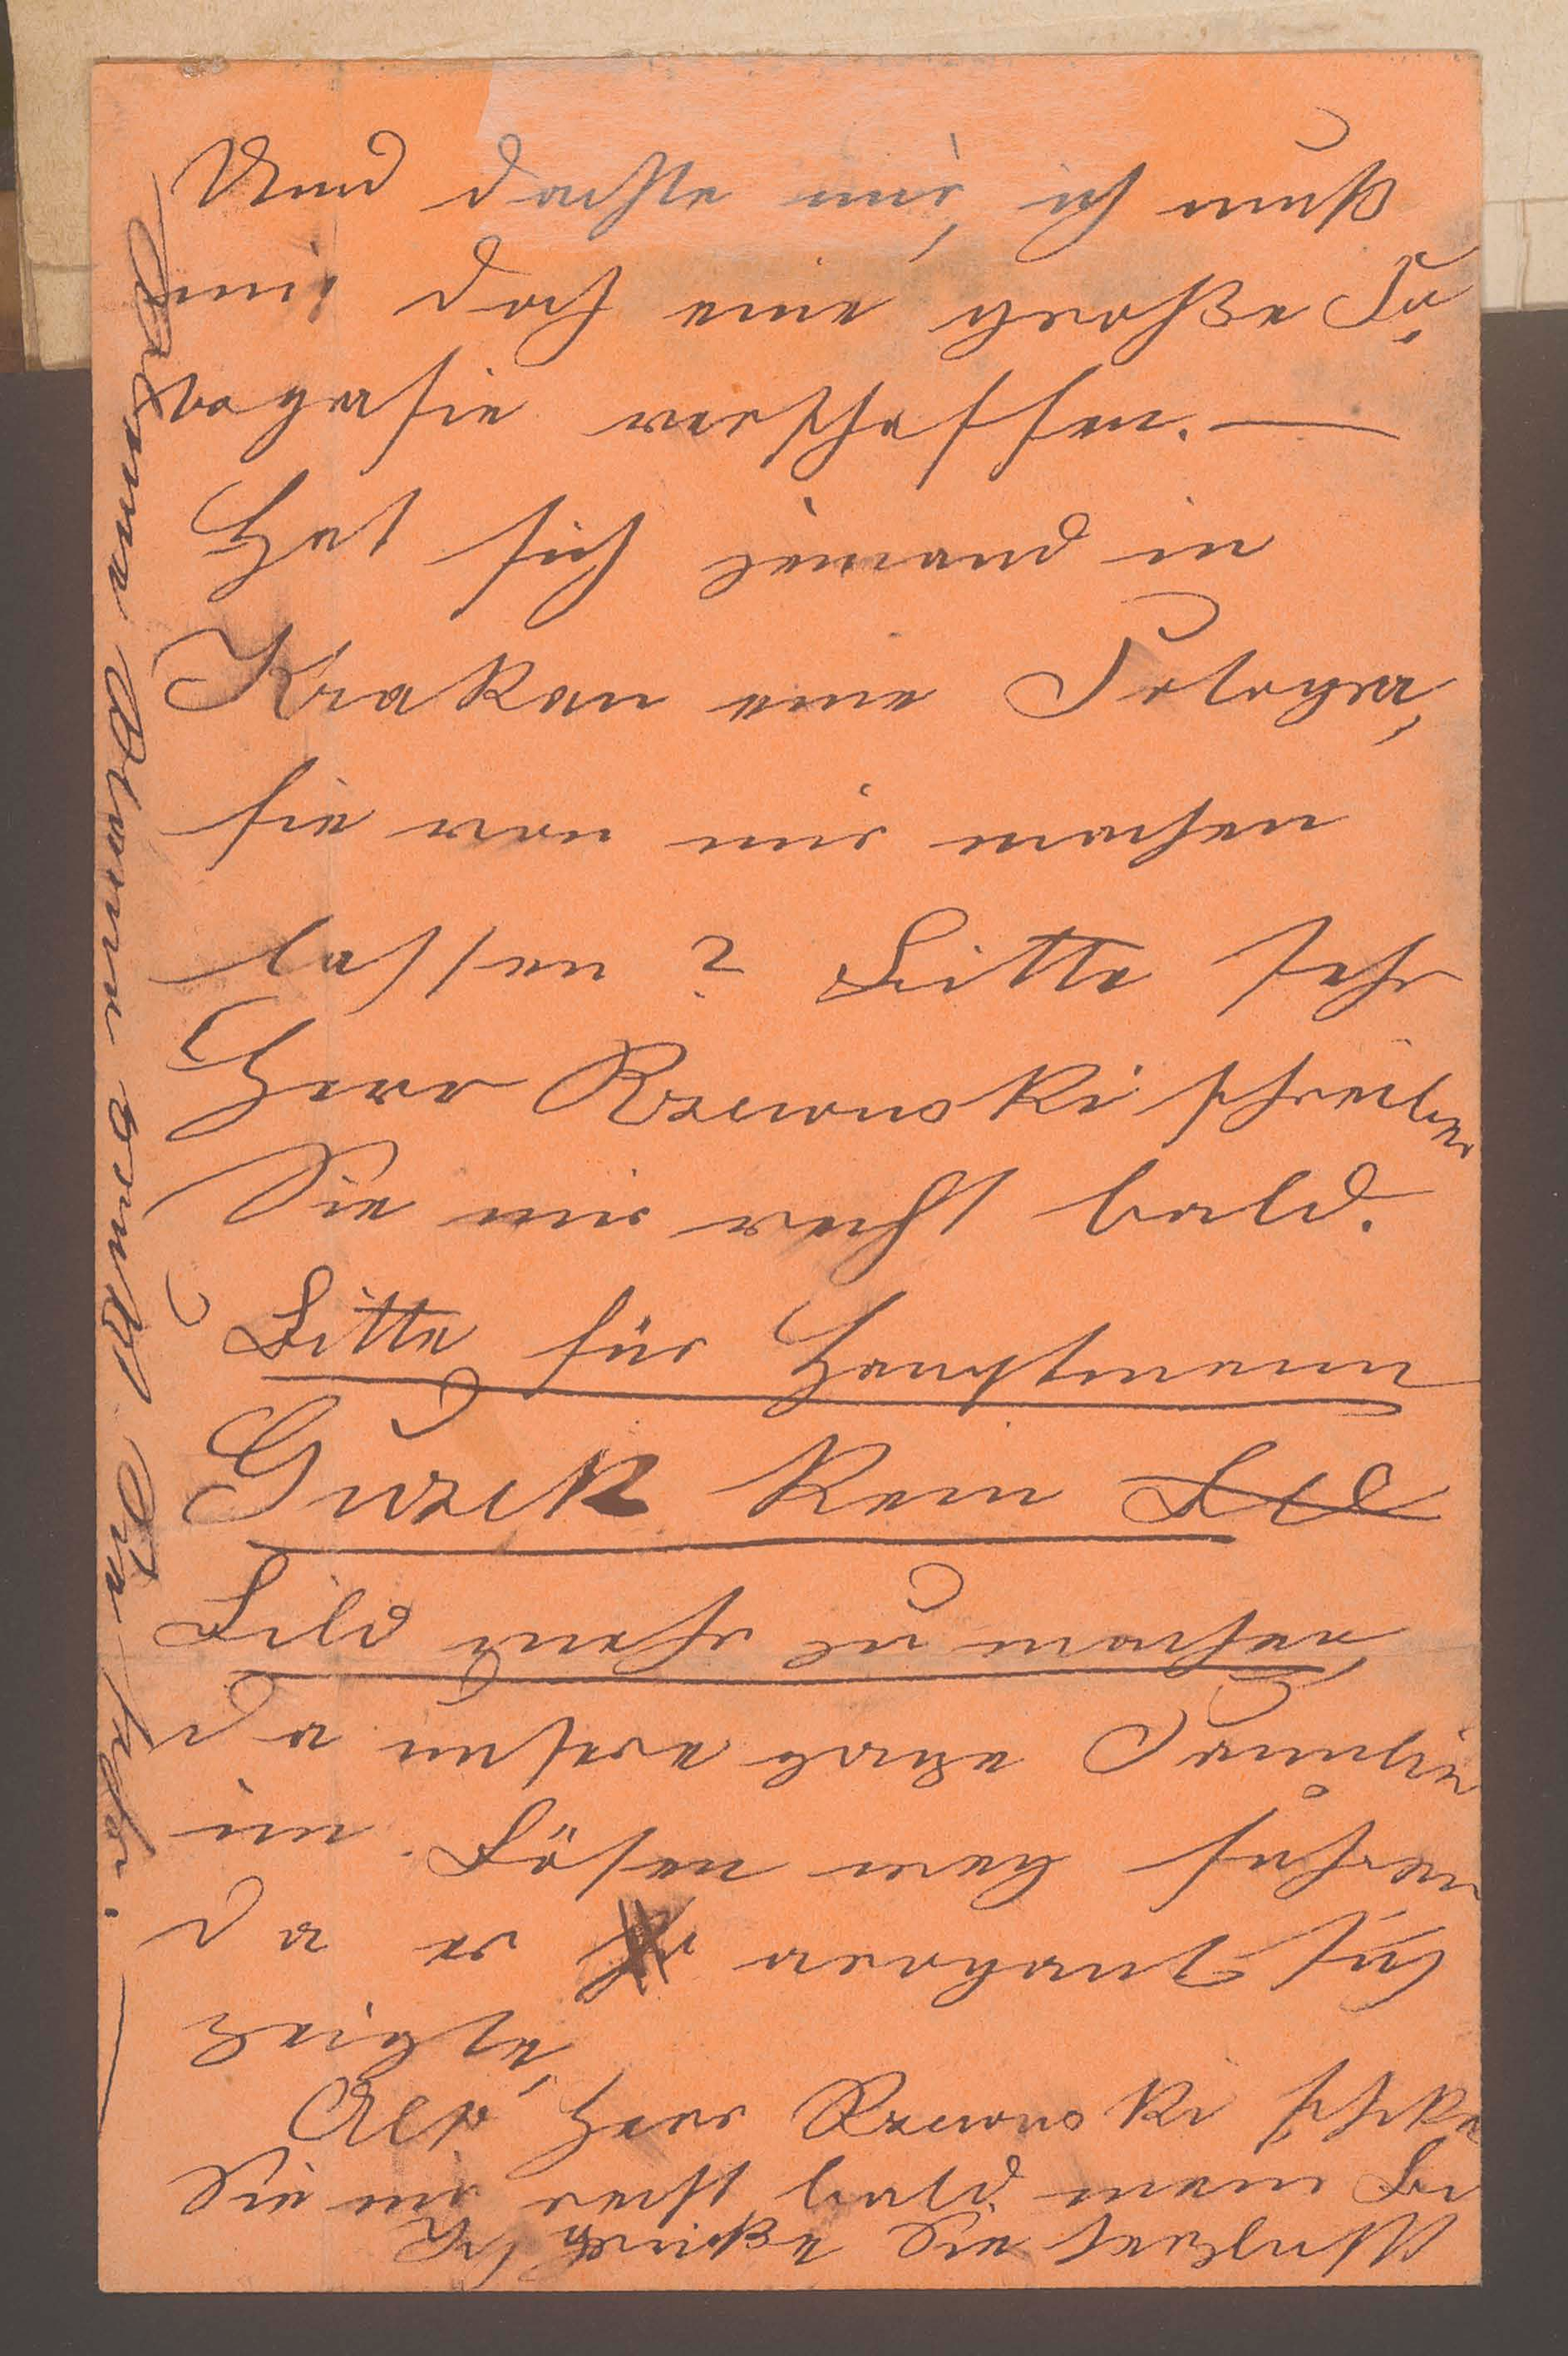 Und dachte mir, ich muß
mir doch eine große Fo,
tografie verschaffen. —
Hat sich jemand in
Krakau eine Fotogra,
fie von mir machen
lassen? Bitte sehr
Herr Rzewuski schreiben
Sie mir recht bald.
Bitte für Hauptmann
Guzek kein
Bild mehr zu machen,
da unsere ganze Familie
im Bösen weg fuhren
da er arrogant sich
zeigte,
Als Herr Rzewuski schike
Sie mir recht bald mein Bi
Ich grüße Sie herzlichst